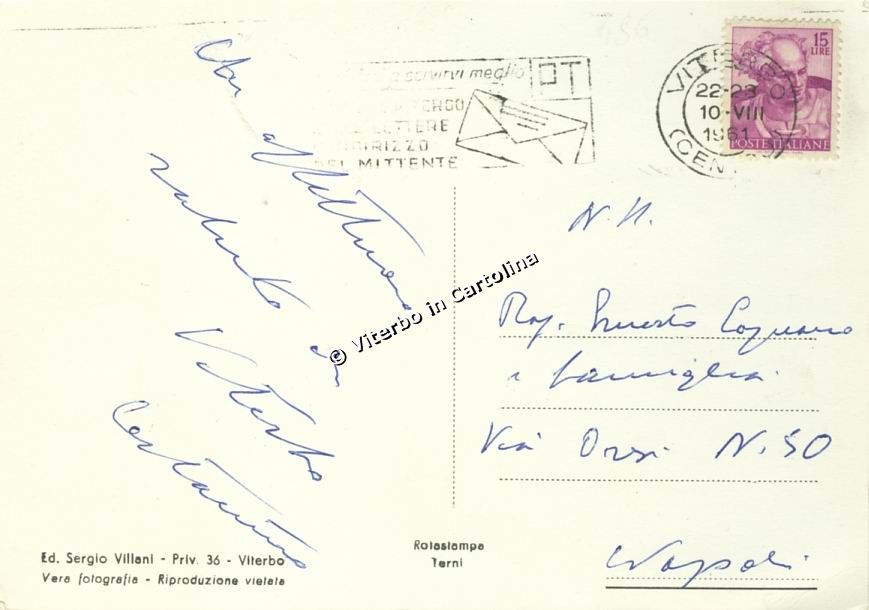 a servirvi meglio
PT
TERGO
LETTERE
INDIRIZZO
DEL MITTENTE
VITERBO
22-23
10-VIII
1961
(CEN
15
LIRE
POSTE ITALIANE
Con
affettuoso
saluto da
Viterbo
Costantino
© Viterbo in Cartolina
N.H.
Rag.
e famiglia
Via Orsi N. 50
Napoli
Ed. Sergio Villani - Priv. 36 - Viterbo
Vera fotografia - Riproduzione vietata
Rotastampa
Terni